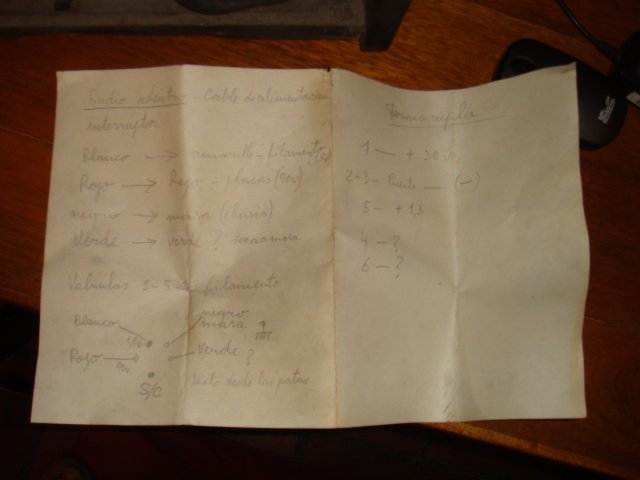 Radio adentro - Cable de alimentacion
interruptor
Blanco → amarillo - filamento
Rojo → Rojo - placas (90v)
negro → masa (chasis)
Verde → verde ? masa
Valvulas 1-5 filamento
negro
Blanco masa
Rojo 90v Verde ?
S/C Visto desde las patas
Termocupla
1 — + 30 v
2-3- Puente — (-)
5 — + 1,3
4 — ?
6 — ?